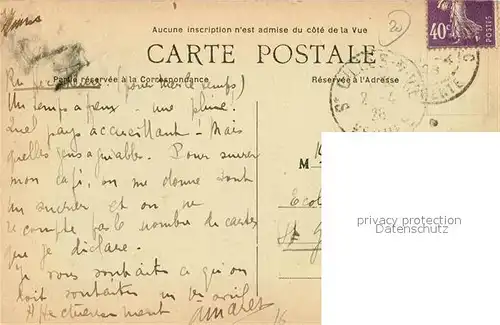 Aucune inscription n'est admise du côté de la Vue
CARTE POSTALE
Partie réservée à la Correspondance
Réservée à l'Adresse
40c
POSTES
20
(pour tuer le temps)
Un temps affreux - une pluie.
Quel pays accueillant! Mais
quelles gens aimables. Pour sucrer
mon café, on me donne tout
un sucrier et on ne
recompte pas le nombre de cartes
que je déclare.
Je vous souhaite ce qu'on
doit souhaiter un 1er avril
Affectueusement
M
Ecol
St G
privacy protection
Datenschutz
16